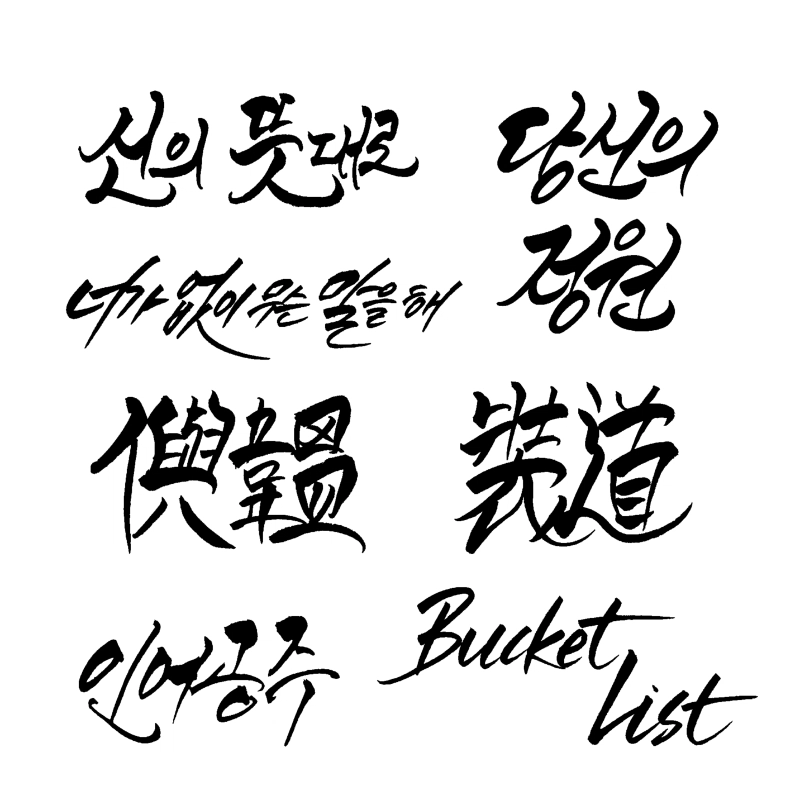 신의 뜻대로
당신의
정원
너가 없이 무슨 일을 해
裝道
인어공주
Bucket
List